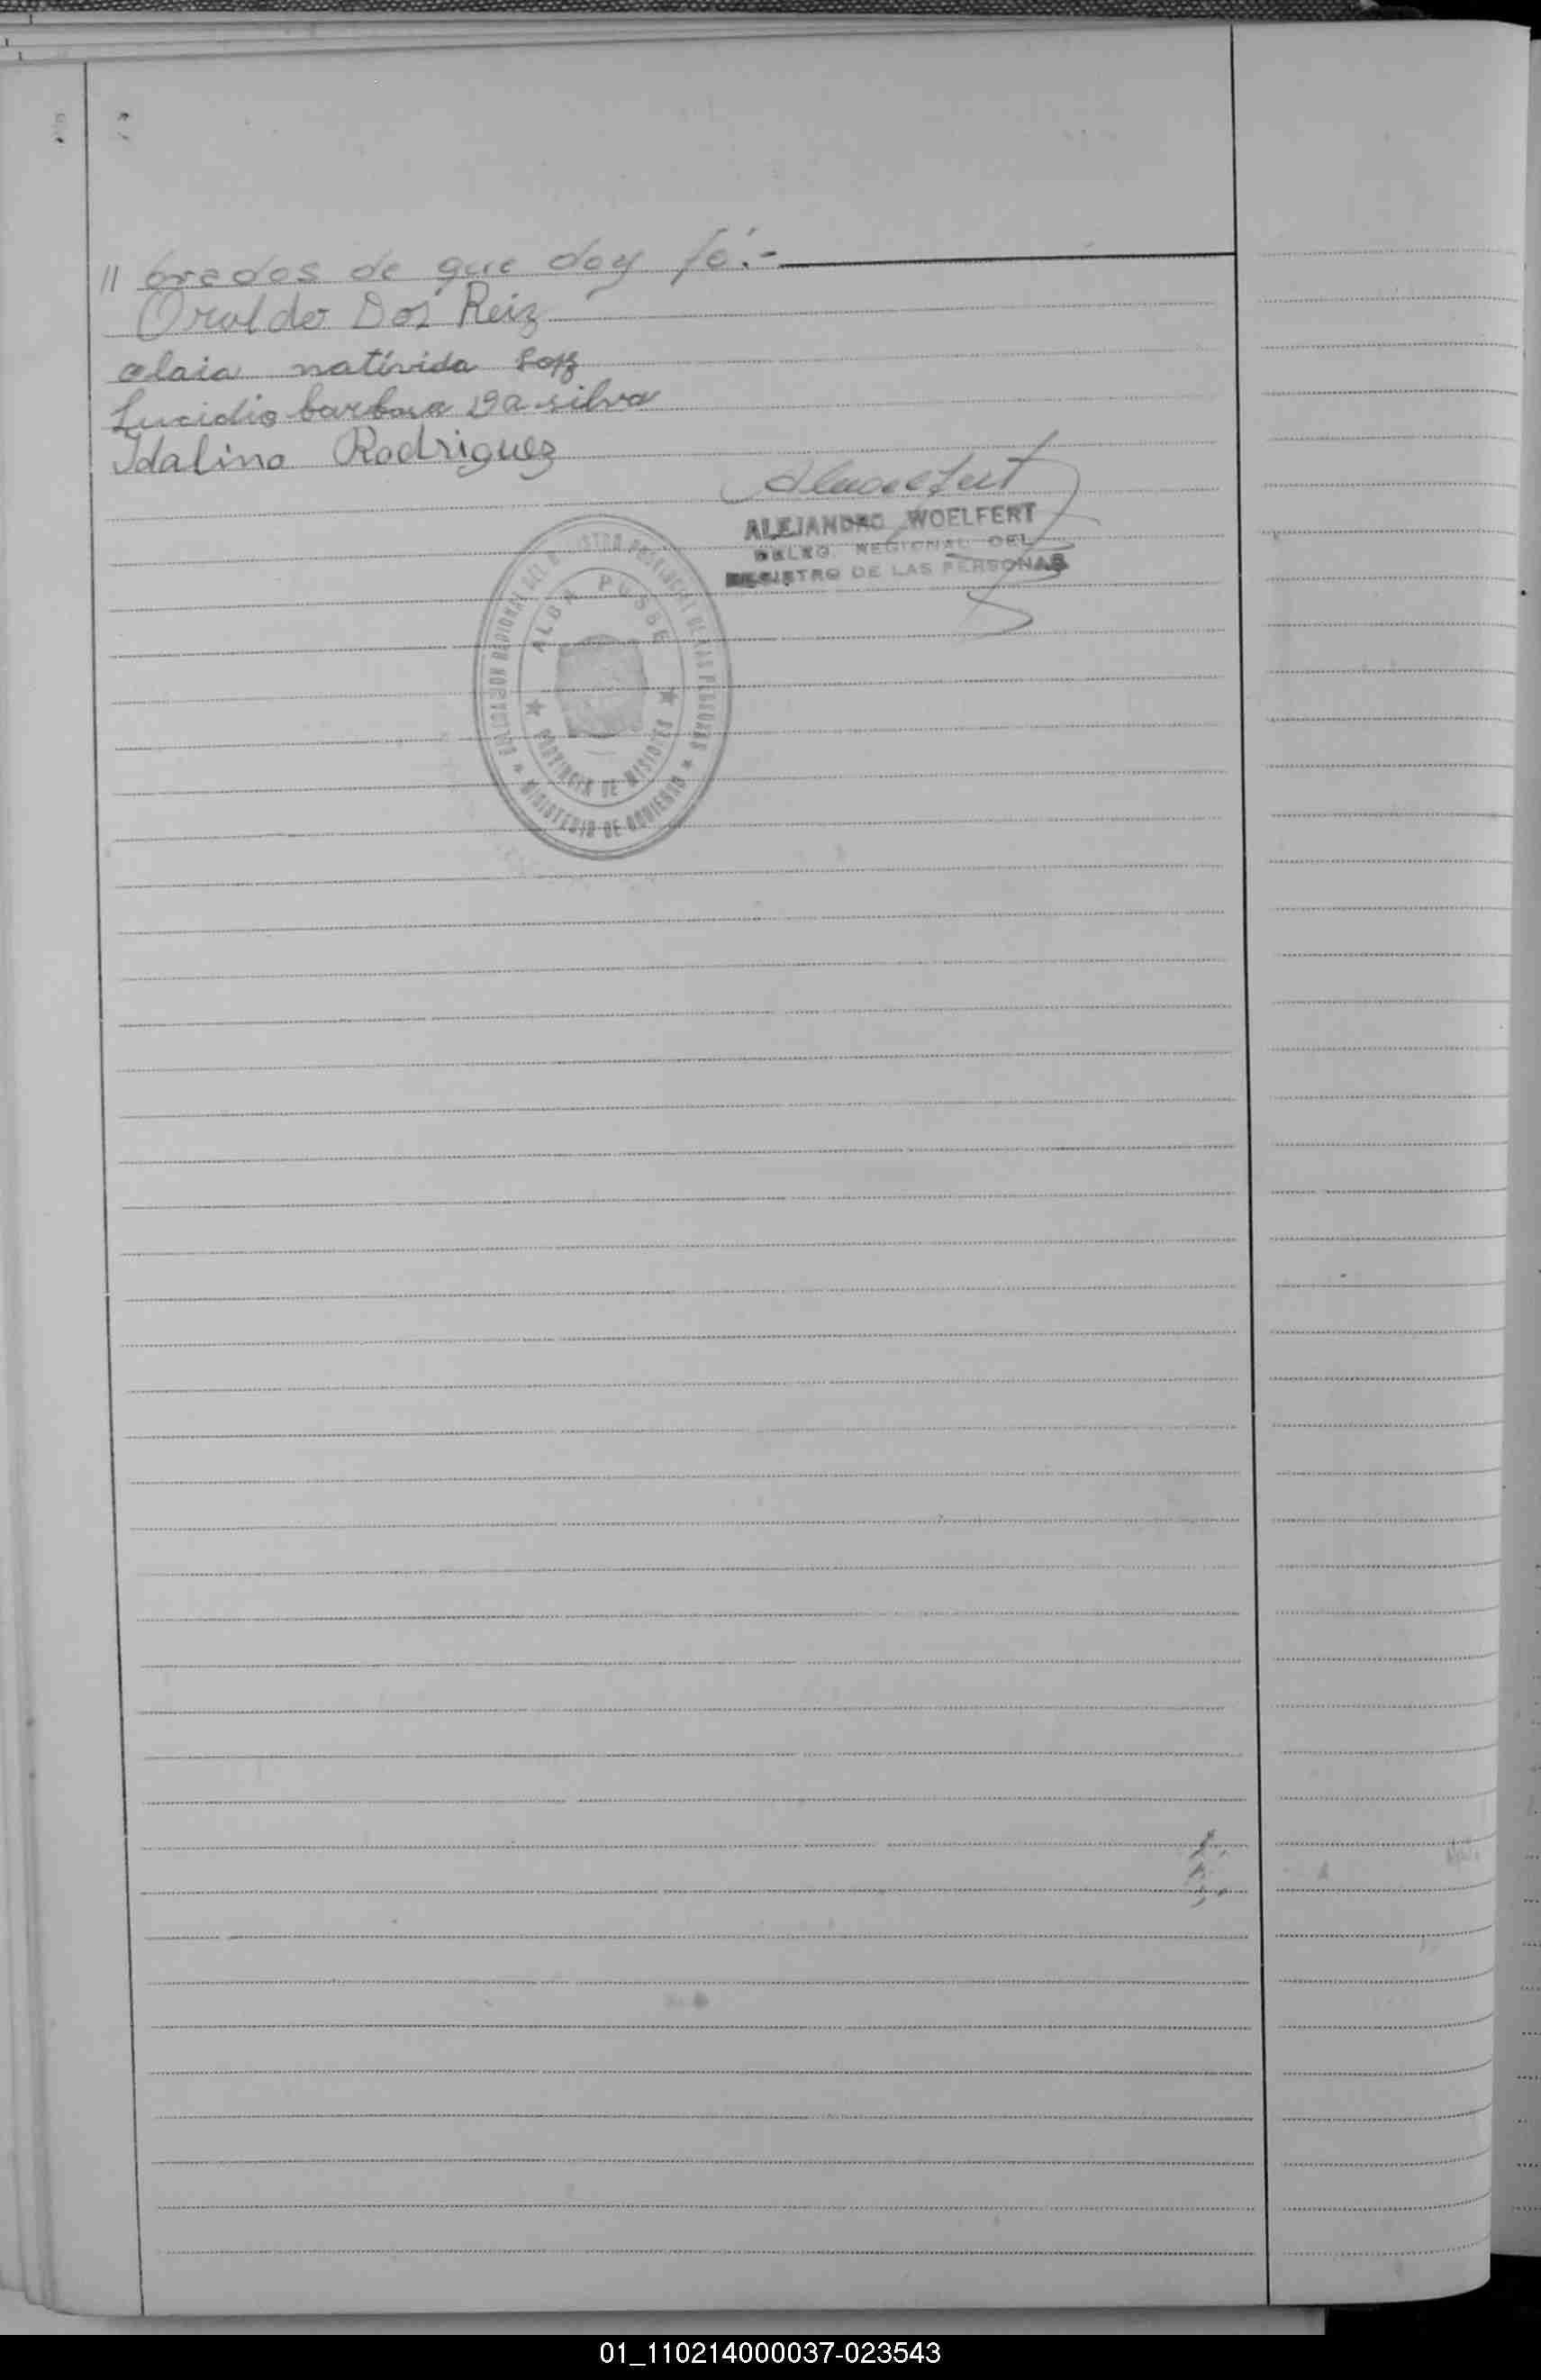 // brados de que doy fé.-
Oraldo Dos Reiz
elaia nativida
Lucidio barbosa Da silva
Idalino Rodriguez
ALEJANDRO WOELFERT
DELEG. REGIONAL DEL
REGISTRO DE LAS PERSONAS
DELEGACION REGIONAL DEL REGISTRO PROVINCIAL DE LAS PERSONAS
ALBA POSSE
PROVINCIA DE MISIONES
MINISTERIO DE GOBIERNO
01_110214000037-023543